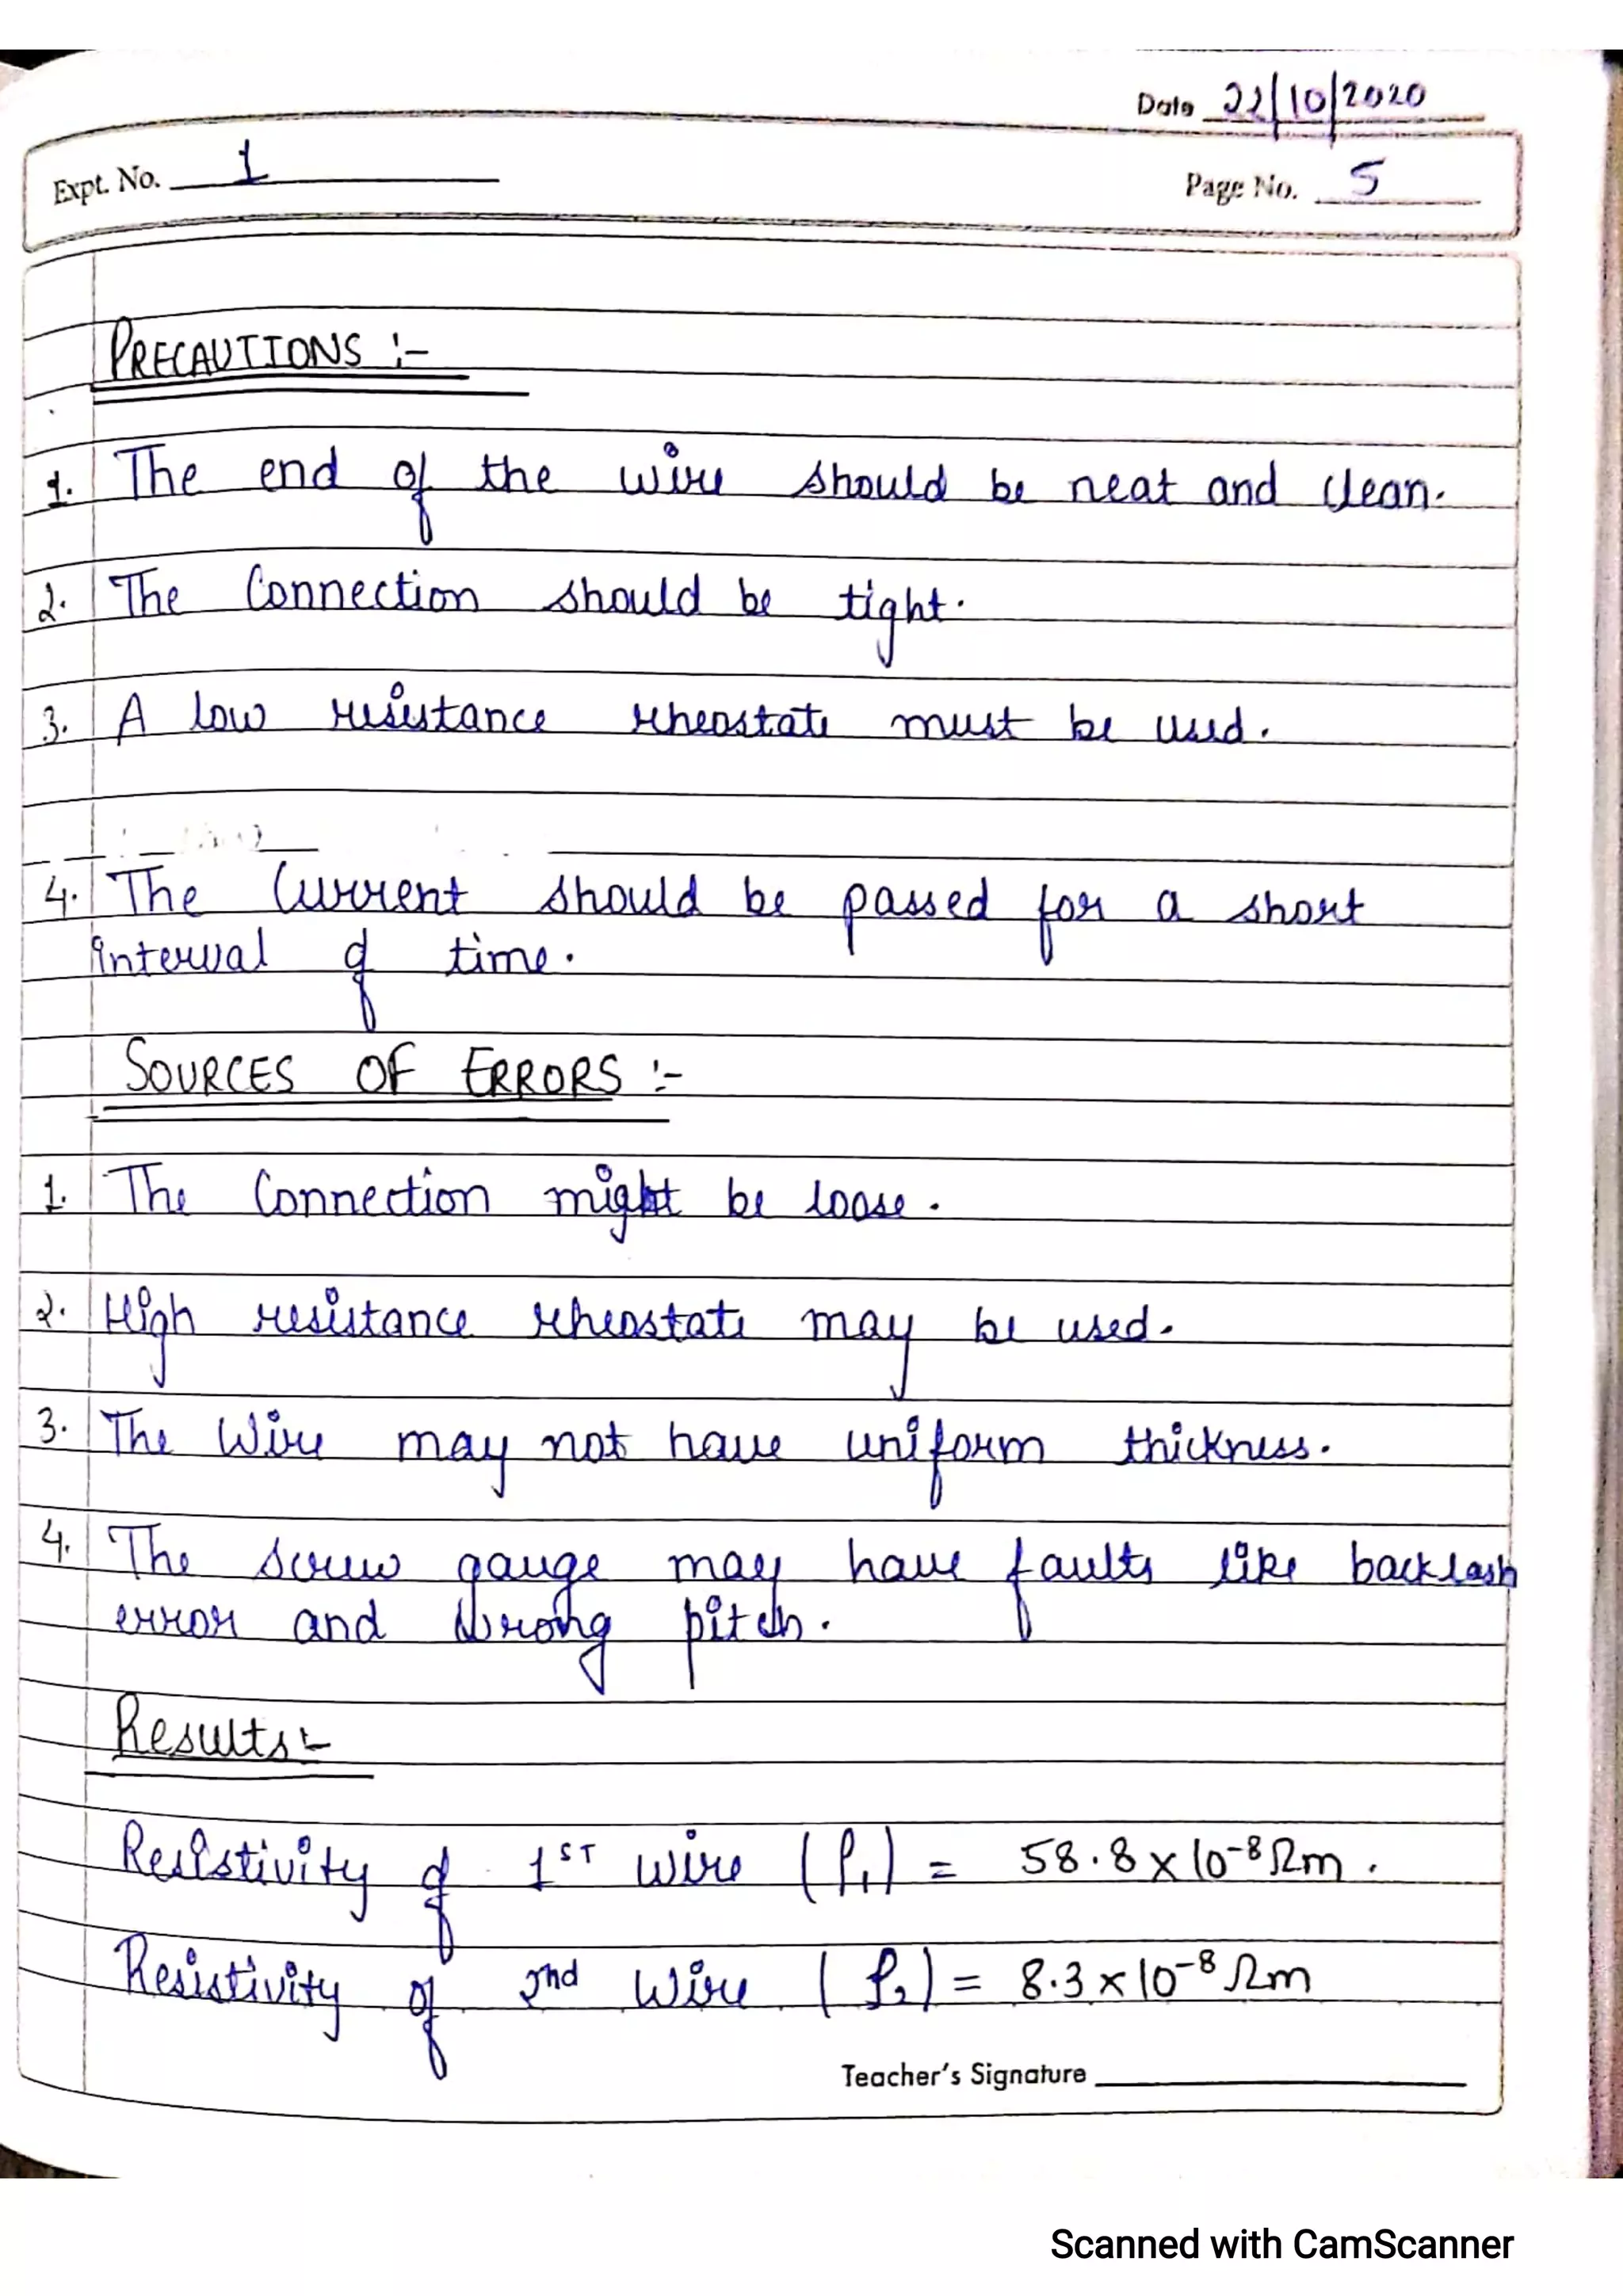 Date 22/10/2020
Expt. No. 1
Page No. 5
PRECAUTIONS :-
1. The end of the wire should be neat and clean.
2. The Connection should be tight.
3. A low resistance rheostate must be used.
4. The Current should be passed for a short
interval of time.
SOURCES OF ERRORS :-
1. The Connection might be loose.
2. High resistance rheostate may be used.
3. The Wire may not have uniform thickness.
4. The screw gauge may have faults like backlash
error and wrong pitch.
Results:-
Resistivity of 1ST wire (ρ₁) = 58.8 x 10⁻⁸ Ωm.
Resistivity of 2nd Wire (ρ₂) = 8.3 x 10⁻⁸ Ωm
Teacher's Signature
Scanned with CamScanner